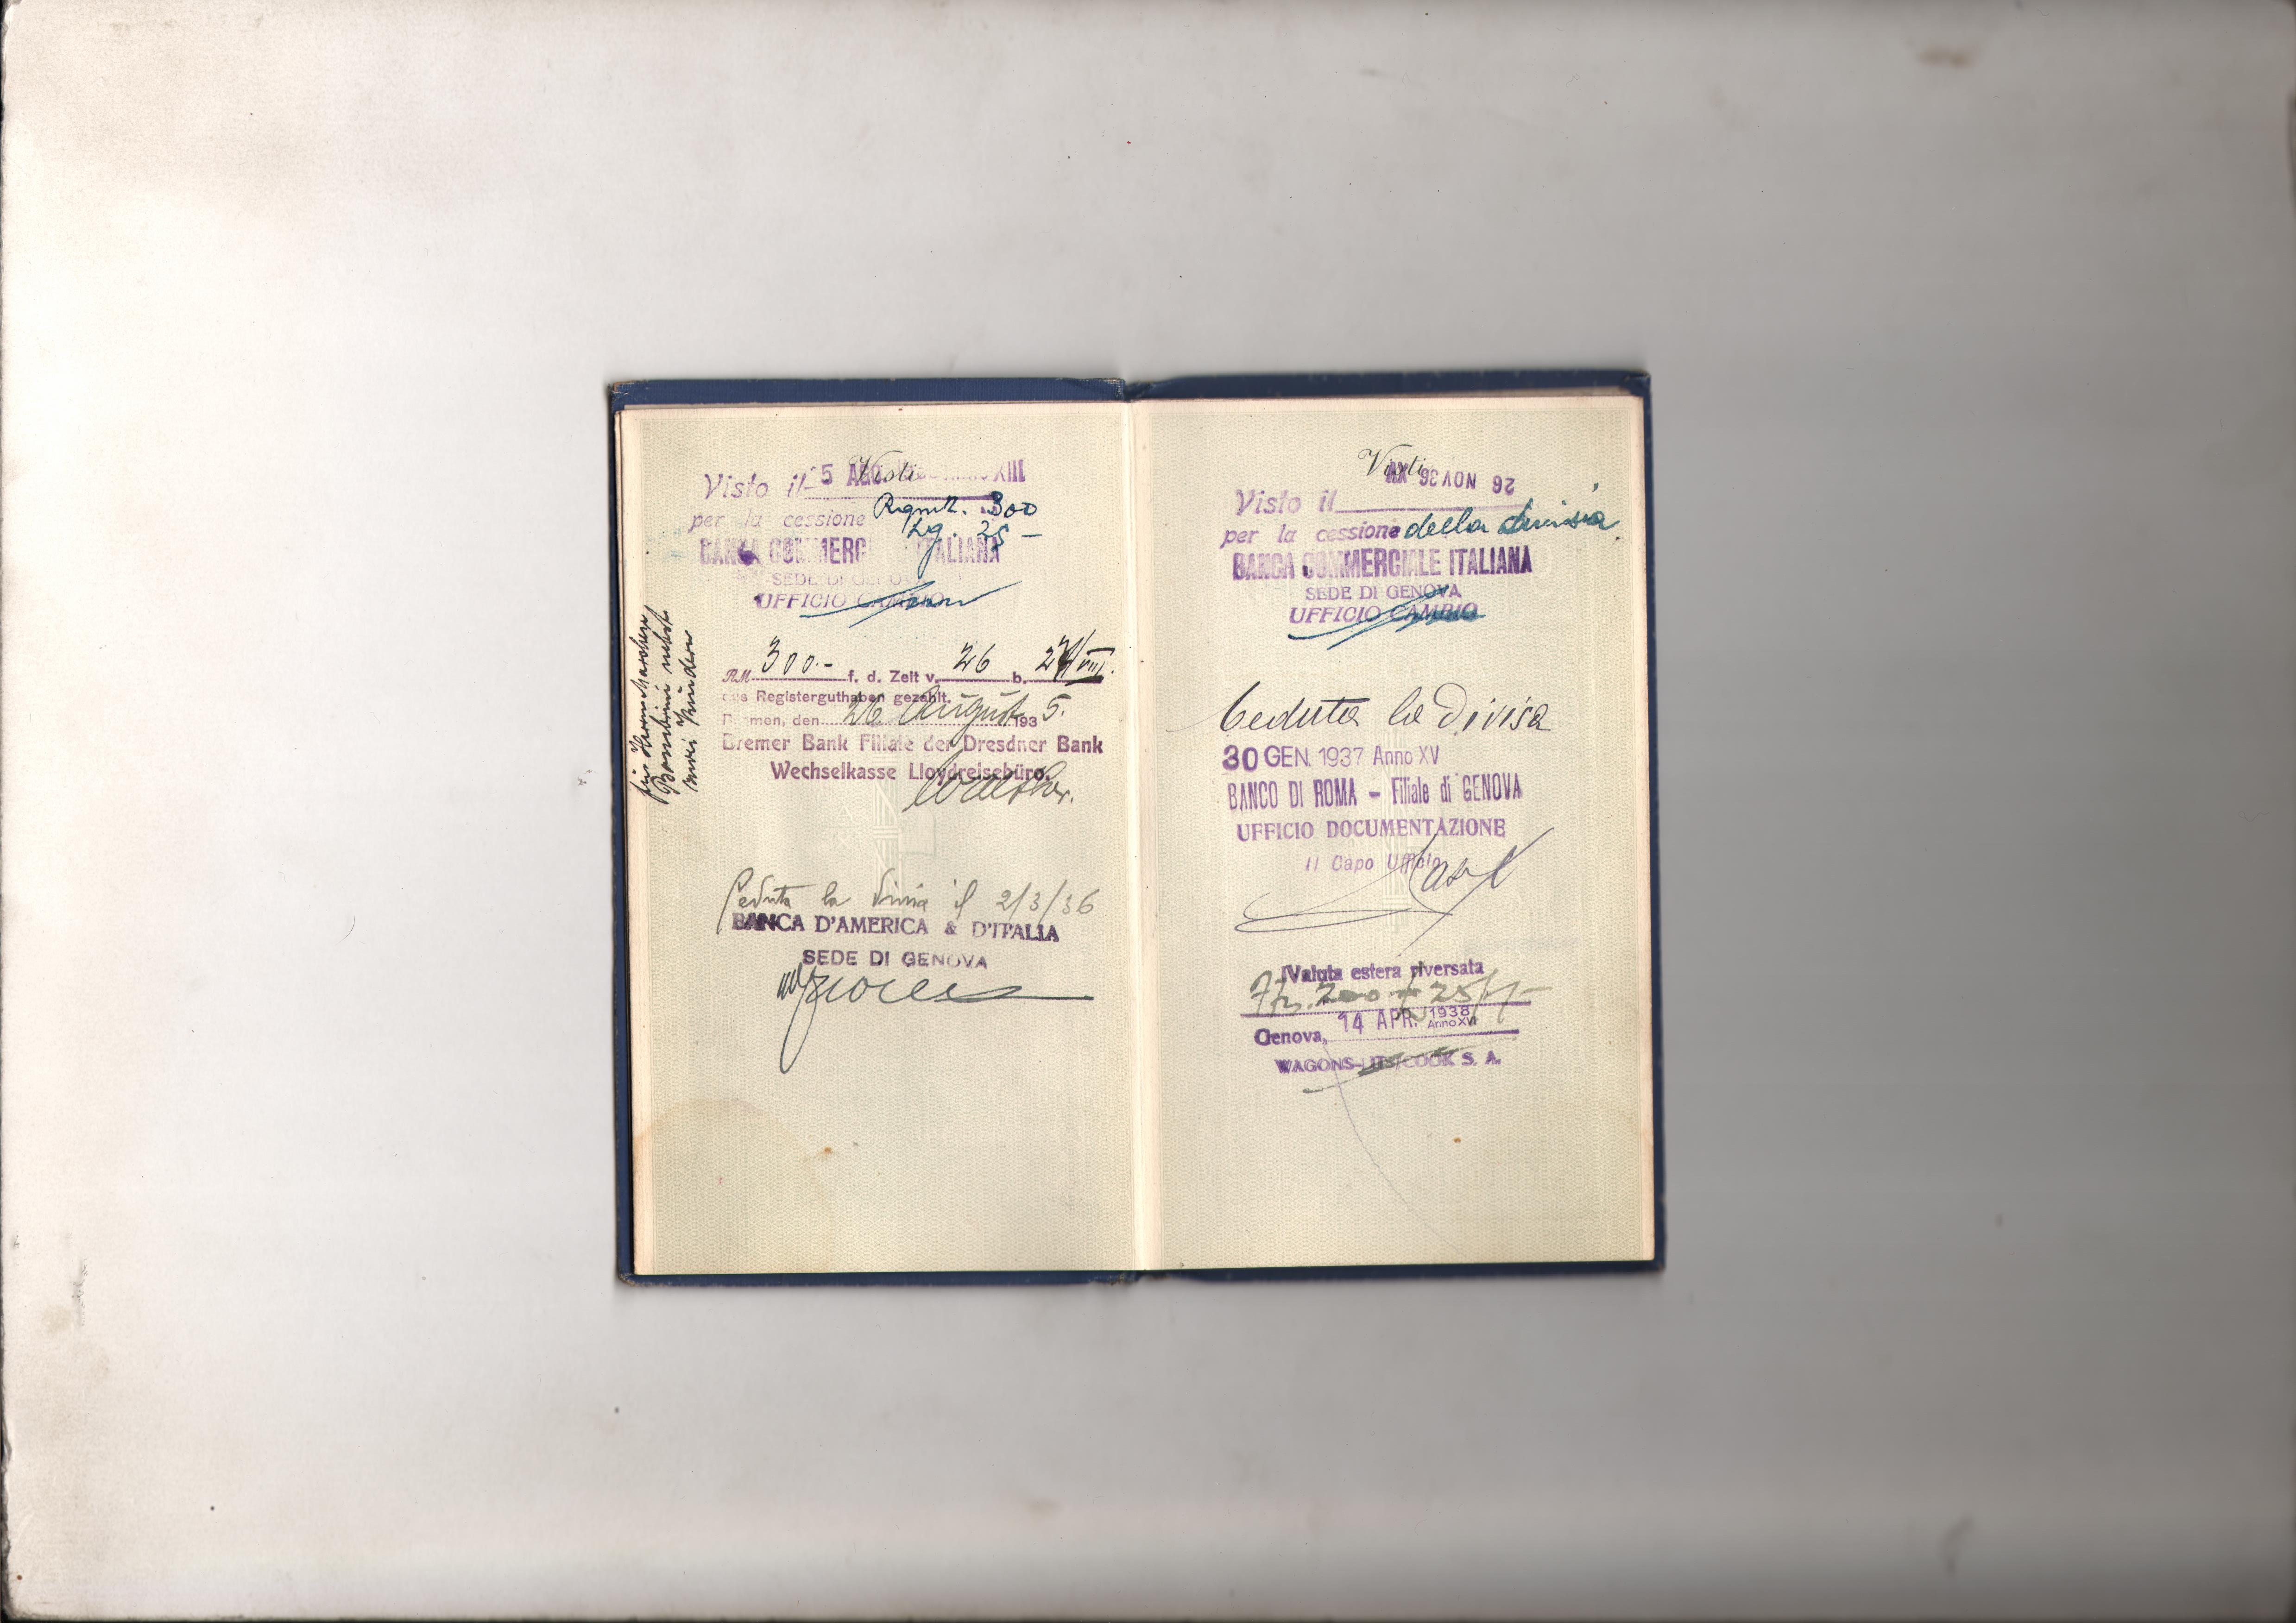 Visti
Visto il 5 AGO. XIII
per la cessione Rgmk. 300
Lg. 25 -
BANCA COMMERCIALE ITALIANA
SEDE DI GENOVA
UFFICIO CAMBIO
RM 300.- f. d. Zeit v. 26 b.
aus Registerguthaben gezahlt.
Bremen, den 26 August 1935.
Bremer Bank Filiale der Dresdner Bank
Wechselkasse Lloydreisebüro.
für Herrn Marchese
nebst
zwei Kindern
Ceduta la divisa il 2/3/36
BANCA D'AMERICA & D'ITALIA
SEDE DI GENOVA
Visti
26 NOV 36 XV
Visto il
per la cessione della divisa.
BANCA COMMERCIALE ITALIANA
SEDE DI GENOVA
UFFICIO CAMBIO
Ceduta la divisa
30 GEN. 1937 Anno XV
BANCO DI ROMA - Filiale di GENOVA
UFFICIO DOCUMENTAZIONE
Il Capo Ufficio
Valuta estera riversata
Genova, 14 APR. 1938 Anno XVI
WAGONS-LITS/COOK S. A.